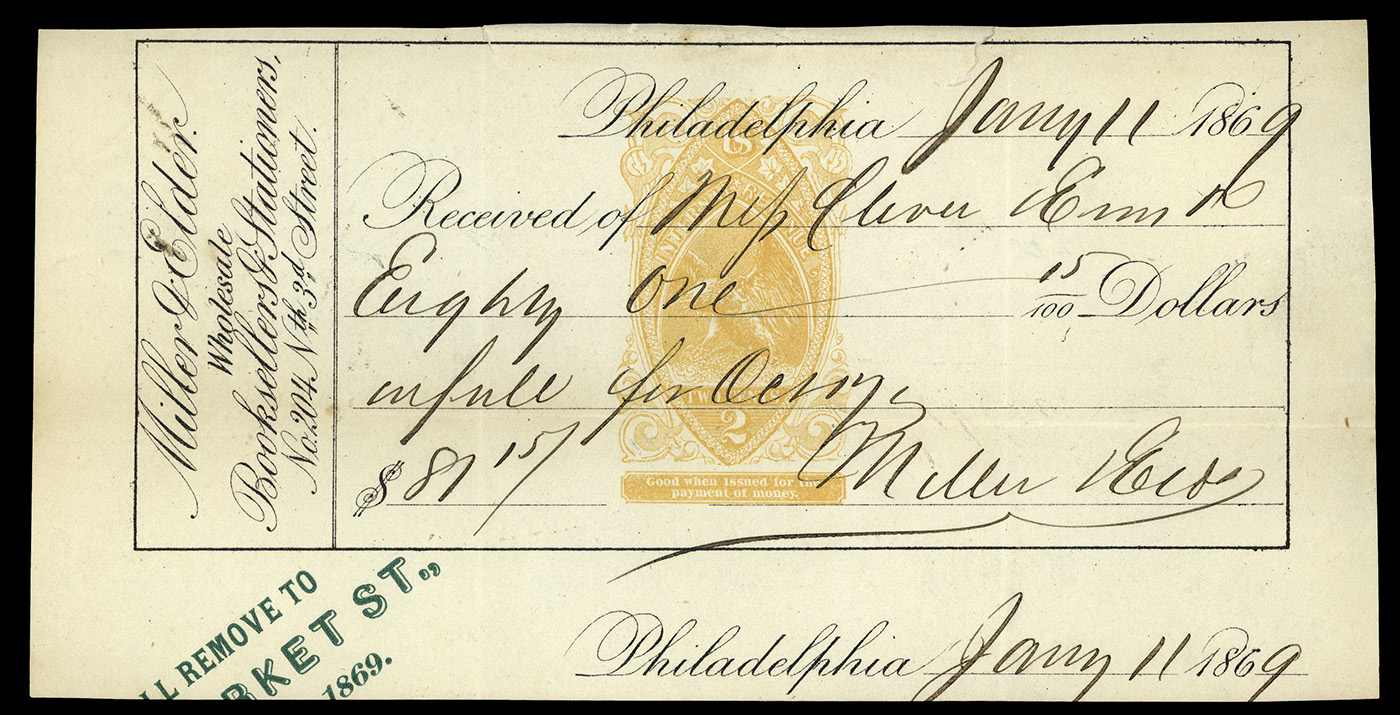 Miller & Elder.
Wholesale
Booksellers & Stationers,
No. 204 Nth 3rd Street.
Philadelphia Jany 11 1869
Received of Mess Clever
Eighty One 15/100 Dollars
in full for
$81 15/
Miller & Eld
US
2
Good when issued for the
payment of money.
LL REMOVE TO
RKET ST.,,
1869.
Philadelphia Jany 11 1869